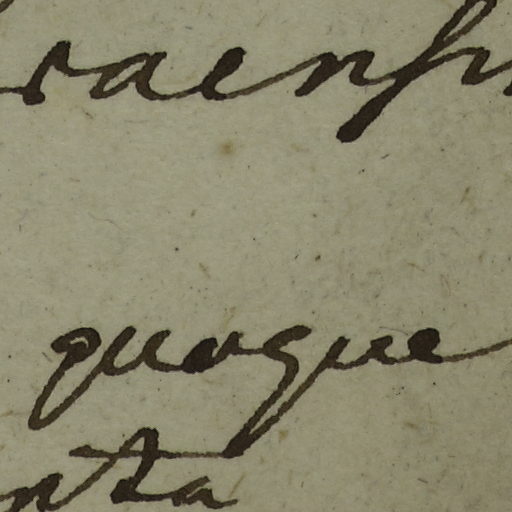 raensu
quoque
nta